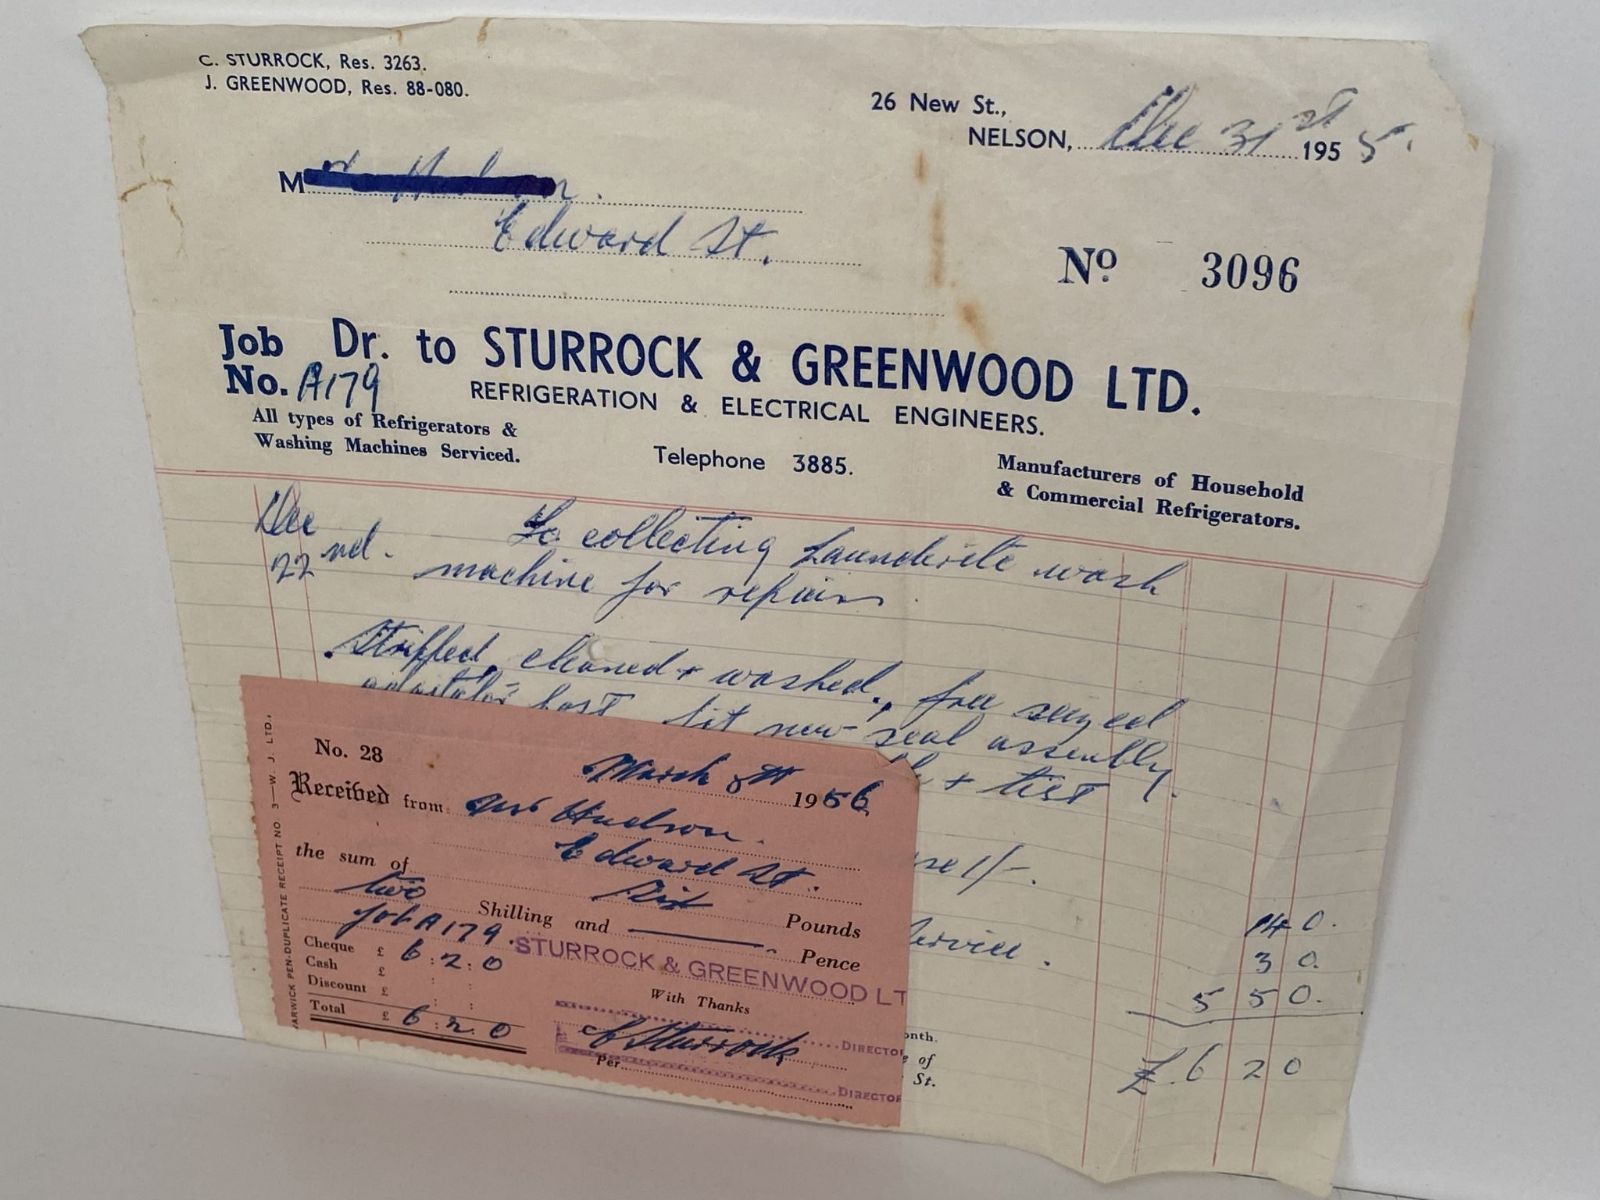 C. STURROCK, Res. 3263.
J. GREENWOOD, Res. 88-080.
26 New St.,
NELSON, Dec 31st 1955.
M
Edward St.
No 3096
Job No. A179
Dr. to STURROCK & GREENWOOD LTD.
REFRIGERATION & ELECTRICAL ENGINEERS.
All types of Refrigerators &
Washing Machines Serviced.
Telephone 3885.
Manufacturers of Household
& Commercial Refrigerators.
Dec 22nd. To collecting Launderite wash
machine for repairs
Stripped, cleaned + washed, free seized
agitator post fit new seal assembly
+ test.
1/-.
14 0.
service. 3 0.
5 5 0.
£ 6 2 0
onth.
e of
St.
WARWICK PEN-DUPLICATE RECEIPT NO. 3—W. J. LTD.,
No. 28
March 8th 1956
Received from Mr Hudson.
Edward St.
the sum of Six Pounds
two Shilling and — Pence
Job A179.
STURROCK & GREENWOOD LT
Cheque £ 6 : 2 : 0
Cash £ : :
Discount £ : :
Total £ 6 : 2 : 0
With Thanks
C Sturrock DIRECTOR
Per DIRECTOR